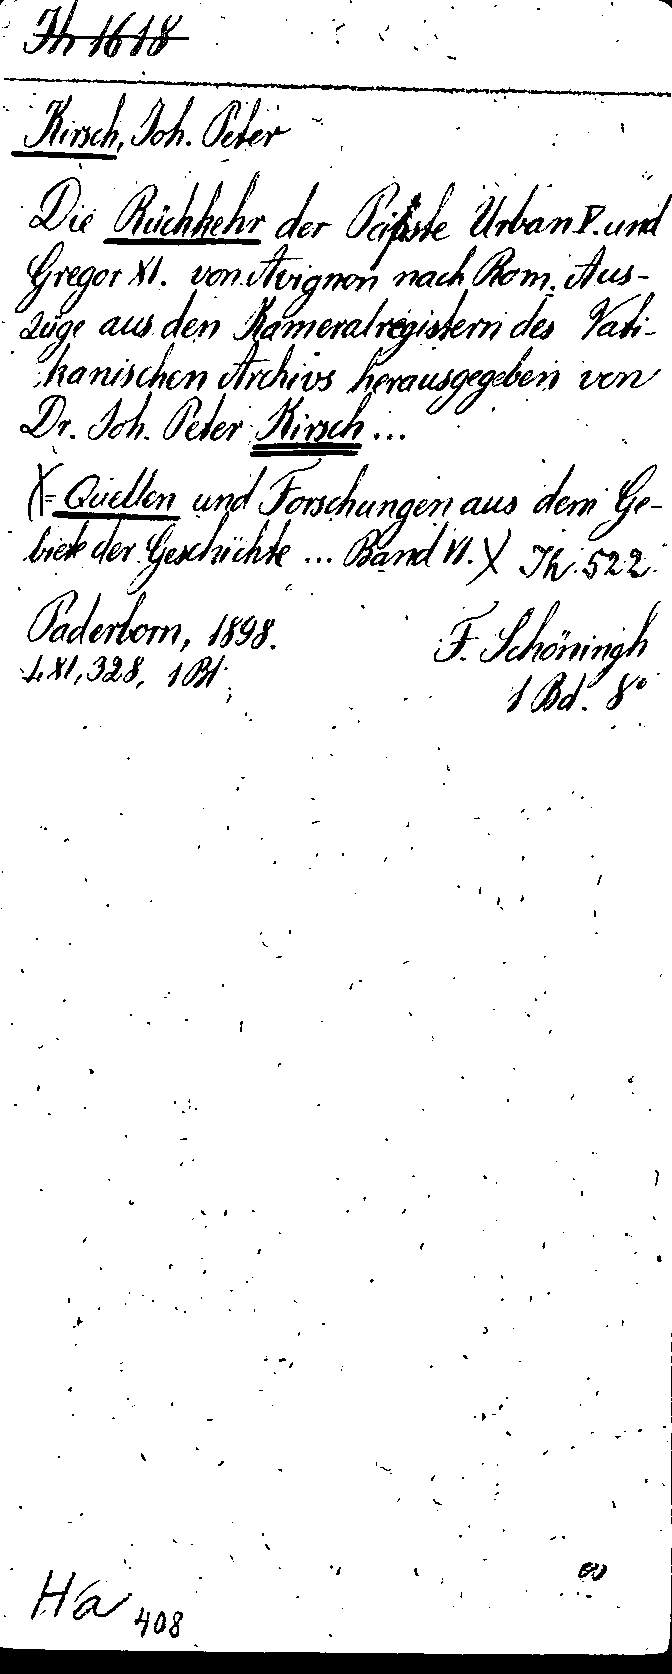 Th 1618
Kirsch, Joh. Peter
Die Rückkehr der Päpste Urban V. und
Gregor XI. von Avignon nach Rom. Aus-
züge aus den Kameralregistern des Vati-
kanischen Archivs herausgegeben von
Dr. Joh. Peter Kirsch ...
(= Quellen und Forschungen aus dem Ge-
biete der Geschichte ... Band VI.) Th. 522
Paderborn, 1898. F. Schöningh
LXI, 328, 1 Bl.
1 Bd. 8°
Ha 408